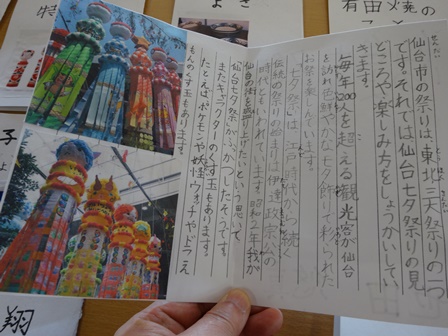 仙台市の祭りは、東北三大祭りの一つ
です。それでは仙台七夕祭りの見
どころや楽しみ方をしょうかいしてい
きます。
毎年200 を超える観光客が仙台
を訪れ色鮮やかな七夕飾りで彩られた
お祭を楽しんでいます。
「七夕祭 」は、江戸 代か 続く
伝統の祭りの始ま は伊達政宗公の
われています。昭和2年我が
仙台の街を盛り上げたいという思いで
仙台七夕祭りが かつしたそうです。
またキャラクターのくす玉もあります。
たとえば、ポケモンや妖怪ウォッチやドラえ
もんのくす玉もあります。
有田
焼の
特
子
翔